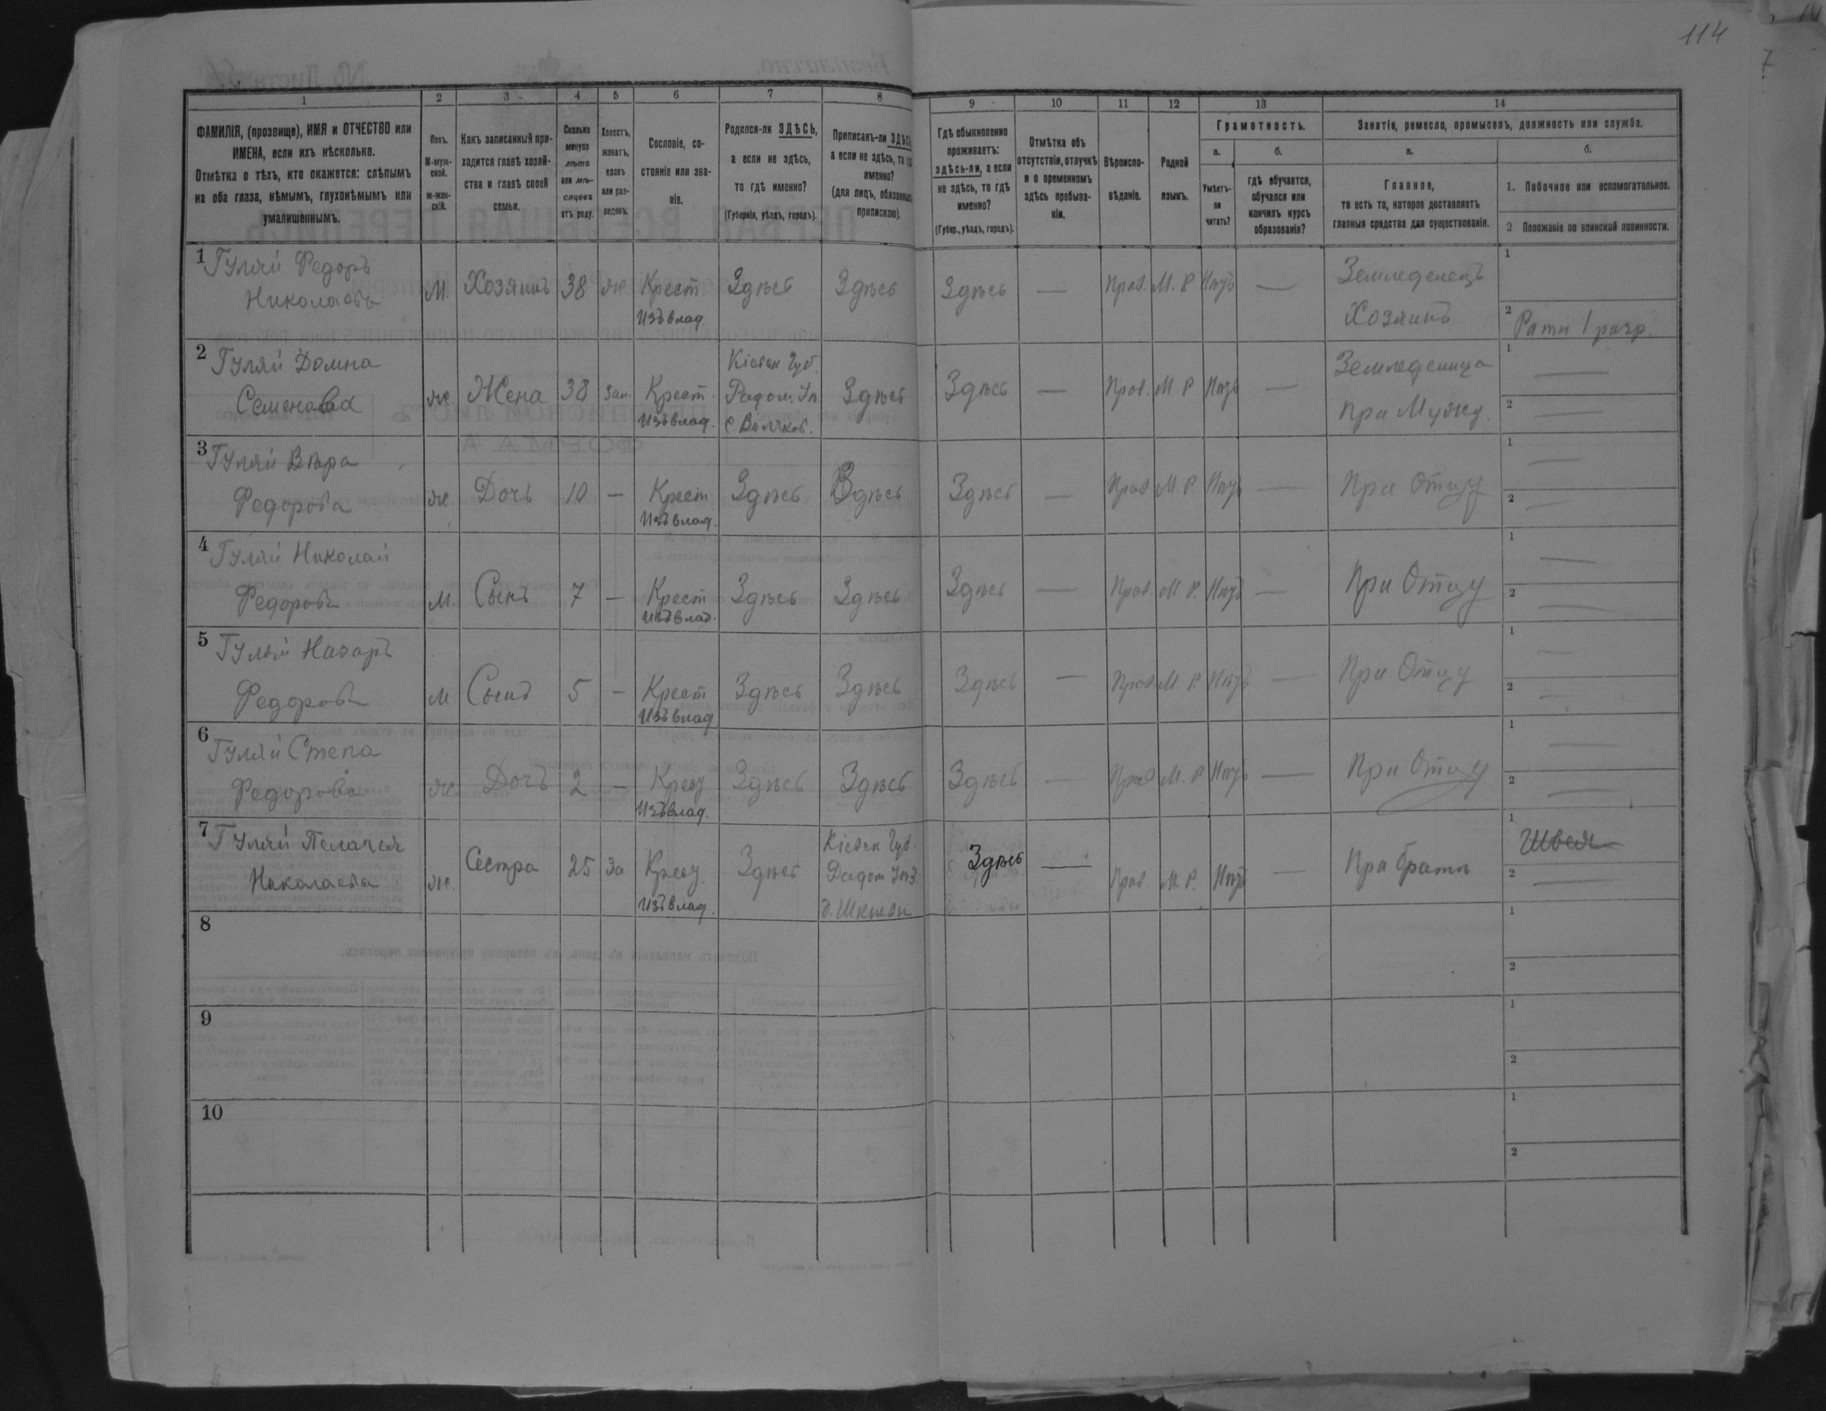 114
1 2 3 4 5 6 7 8 9 10 11 12 13 14
ФАМИЛІЯ, (прозвище), ИМЯ и ОТЧЕСТВО или
ИМЕНА, если ихъ нѣсколько.
Отмѣтка о тѣхъ, кто окажется: слѣпымъ
на оба глаза, нѣмымъ, глухонѣмымъ или
умалишеннымъ.
Полъ.
М-муж-
ской.
Ж-жен-
скій.
Какъ записанный при-
ходится главѣ хозяй-
ства и главѣ своей
семьи.
Сколько
минуло
лѣтъ
или мѣ-
сяцевъ
отъ роду.
Холостъ,
женатъ,
вдовъ
или раз-
веденъ.
Сословіе, со-
стояніе или зва-
ніе.
Родился-ли ЗДѢСЬ,
а если не здѣсь,
то гдѣ именно?
(Губернія, уѣздъ, городъ).
Приписанъ-ли ЗДѢСЬ,
а если не здѣсь, то гдѣ
именно?
(для лицъ, обязанныхъ
припискою).
Гдѣ обыкновенно
проживаетъ:
здѣсь-ли, а если
не здѣсь, то гдѣ
именно?
(Губер., уѣздъ, городъ).
Отмѣтка объ
отсутствіи, отлучкѣ
и о временномъ
здѣсь пребыва-
ніи.
Вѣроиспо-
вѣданіе.
Родной
языкъ.
Грамотность.
а.
Умѣетъ-
ли
читать?
б.
гдѣ обучается,
обучался или
кончилъ курсъ
образованія?
Занятіе, ремесло, промыселъ, должность или служба.
а.
Главное,
то есть то, которое доставляетъ
главныя средства для существованія.
б.
1. Побочное или вспомогательное.
2 Положеніе по воинской повинности.
1 Гуляй Федоръ
Николаевъ
М. Хозяинъ 38 же Крест
Изъ влад.
Здѣсь Здѣсь Здѣсь — Прав. М. Р Нѣтъ —
Земледелецъ
Хозяинъ
1
2 Ратн 1 разр.
2 Гуляй Домна
Семенова
же Жена 38 Зам. Крест.
Изъ влад.
Кіевск Губ.
Радом. Уп.
с. Волчков.
Здѣсь Здѣсь — Прав. М Р Нѣтъ —
Земледелица
При Мужу.
1 —
2 —
3 Гуляй Вѣра
Федорова
же. Дочь 10 — Крест
Изъ влад.
Здѣсь Здѣсь Здѣсь — Прав М. Р Нѣтъ —
При Отцу
1 —
2 —
4 Гуляй Николай
Федоровъ
М. Сынъ 7 — Крест
Изъ влад.
Здѣсь Здѣсь Здѣсь — Прав. М. Р. Нѣтъ —
При Отцу
1 —
2 —
5 Гуляй Назаръ
Федоровъ
М Сынъ 5 — Крест
Изъ влад
Здѣсь Здѣсь Здѣсь — Прав М. Р. Нѣтъ —
При Отцу
1 —
2 —
6 Гуляй Степа
Федорова
же. Дочь 2 — Крест
Изъ влад.
Здѣсь Здѣсь Здѣсь — Прав М. Р Нѣтъ —
При Отцу
1 —
2 —
7 Гуляй Пелагея
Николаева
же. Сестра 25 За Крест.
Изъ влад.
Здѣсь
Кіевск Губ.
Радом Уѣз.
Здѣсь — Прав. М. Р. Нѣтъ —
При братѣ
1 Швея
2 —
8
1
2
9
1
2
10
1
2